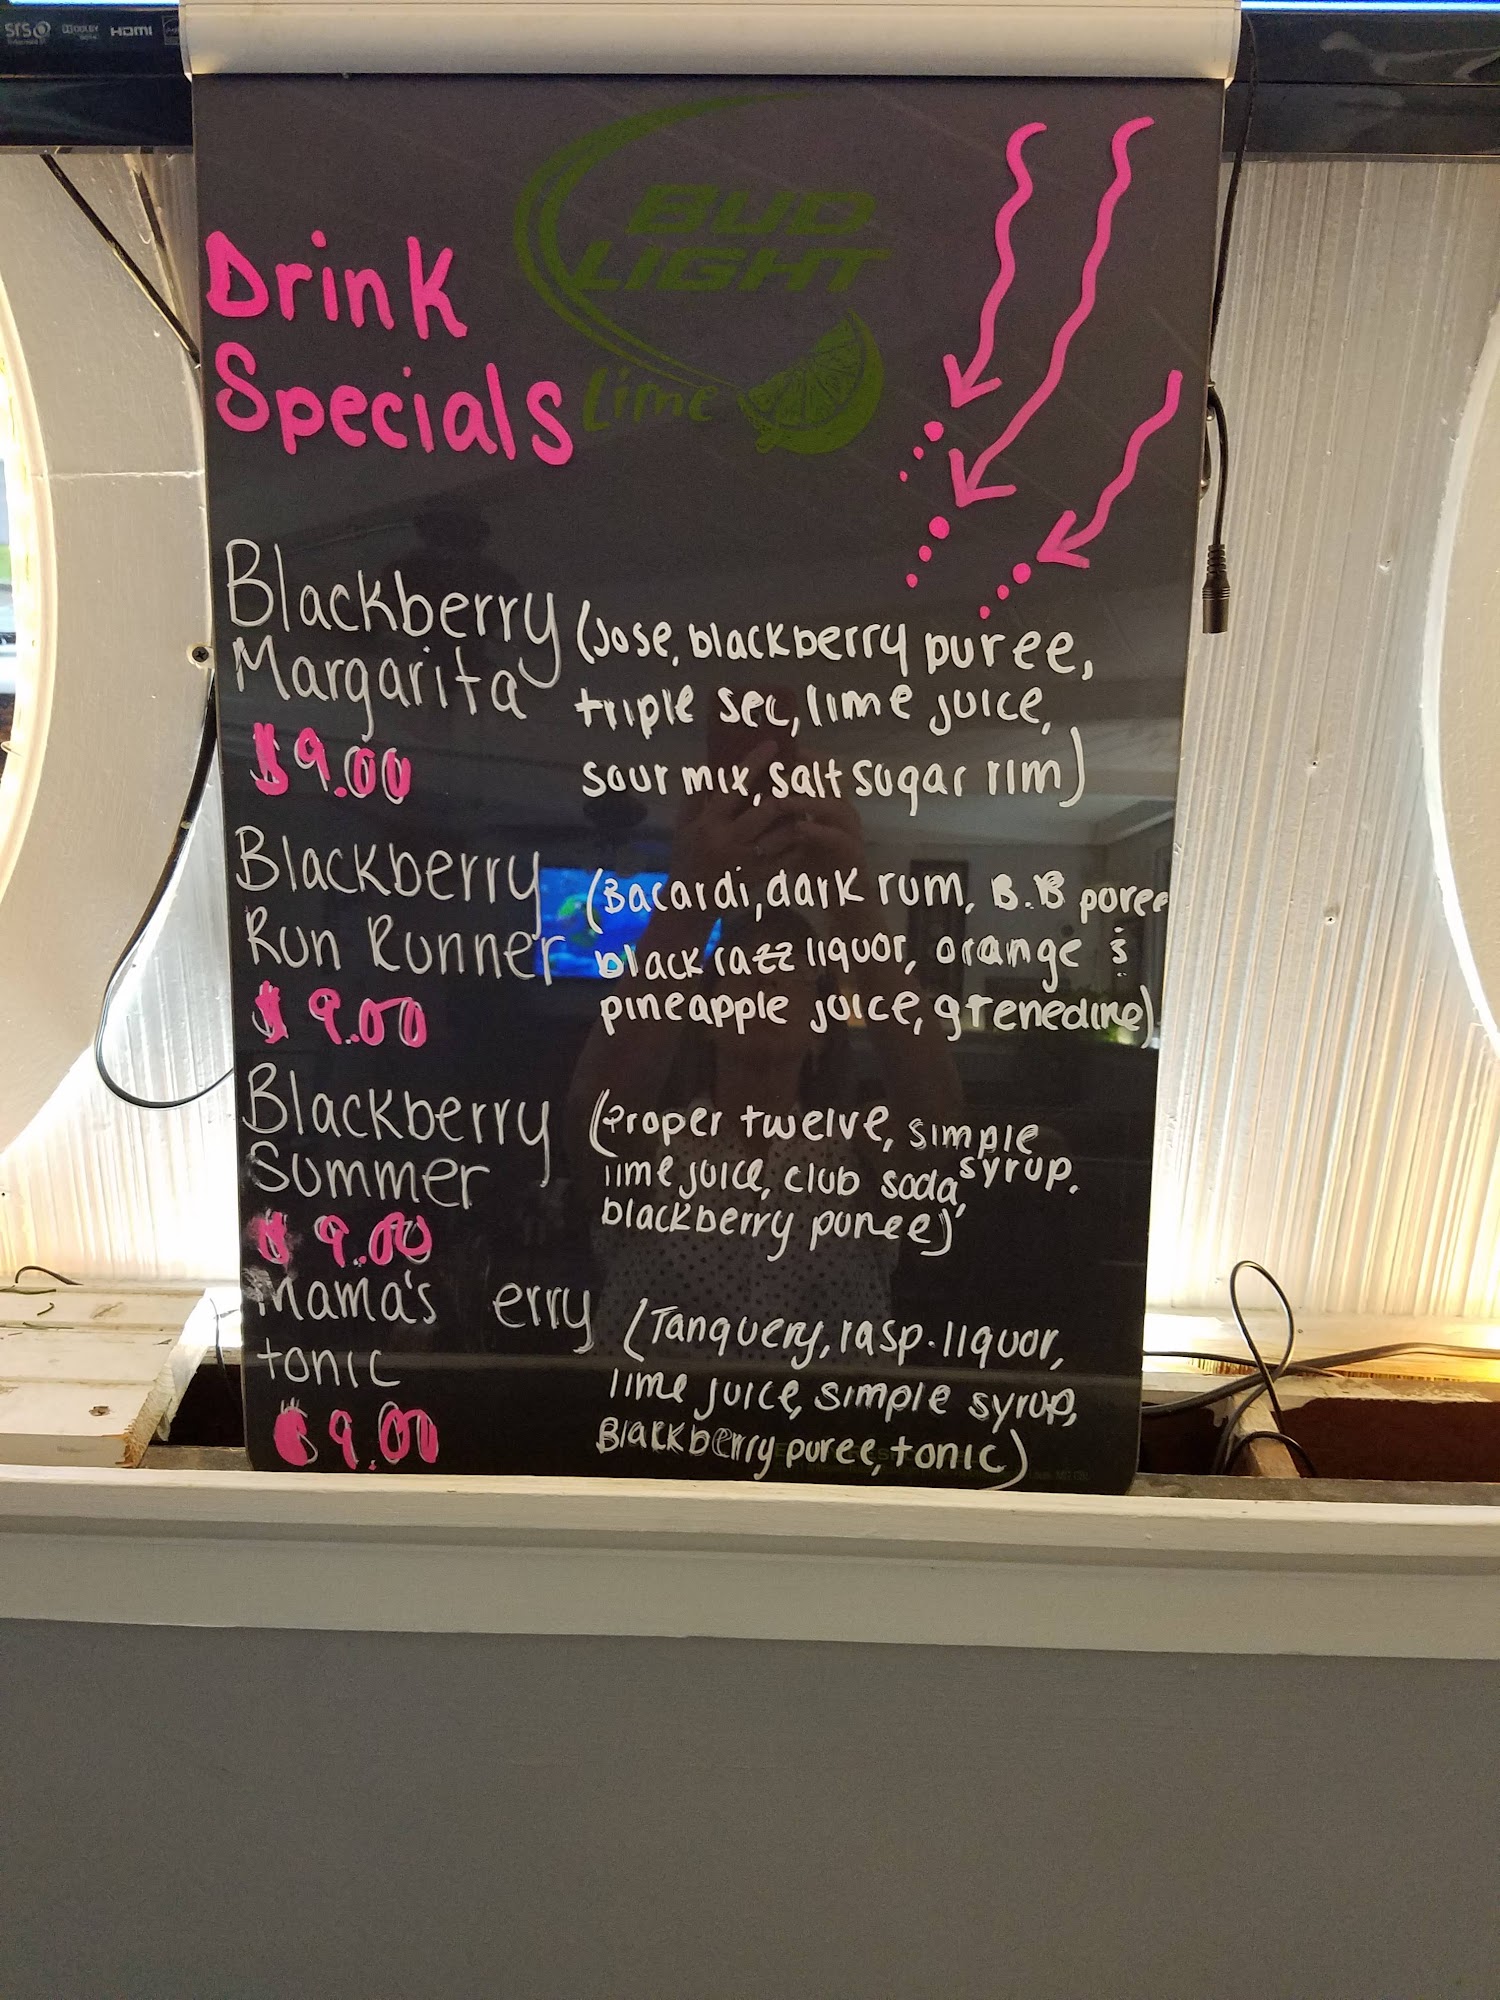 SRS
DOLBY
HDMI
BUD
LIGHT
Lime
Drink
Specials
Blackberry
Margarita
$9.00
(Jose, blackberry puree,
triple sec, lime juice,
sour mix, salt sugar rim)
Blackberry
Run Runner
$9.00
(Bacardi, dark rum, B.B puree
black razz liquor, orange &
pineapple juice, grenedine)
Blackberry
Summer
$9.00
(Proper twelve, simple
syrup,
lime juice, club soda,
blackberry puree)
Mama's erry
tonic
$9.00
(Tanquery, rasp. liquor,
lime juice, simple syrup,
Blackberry puree, tonic)